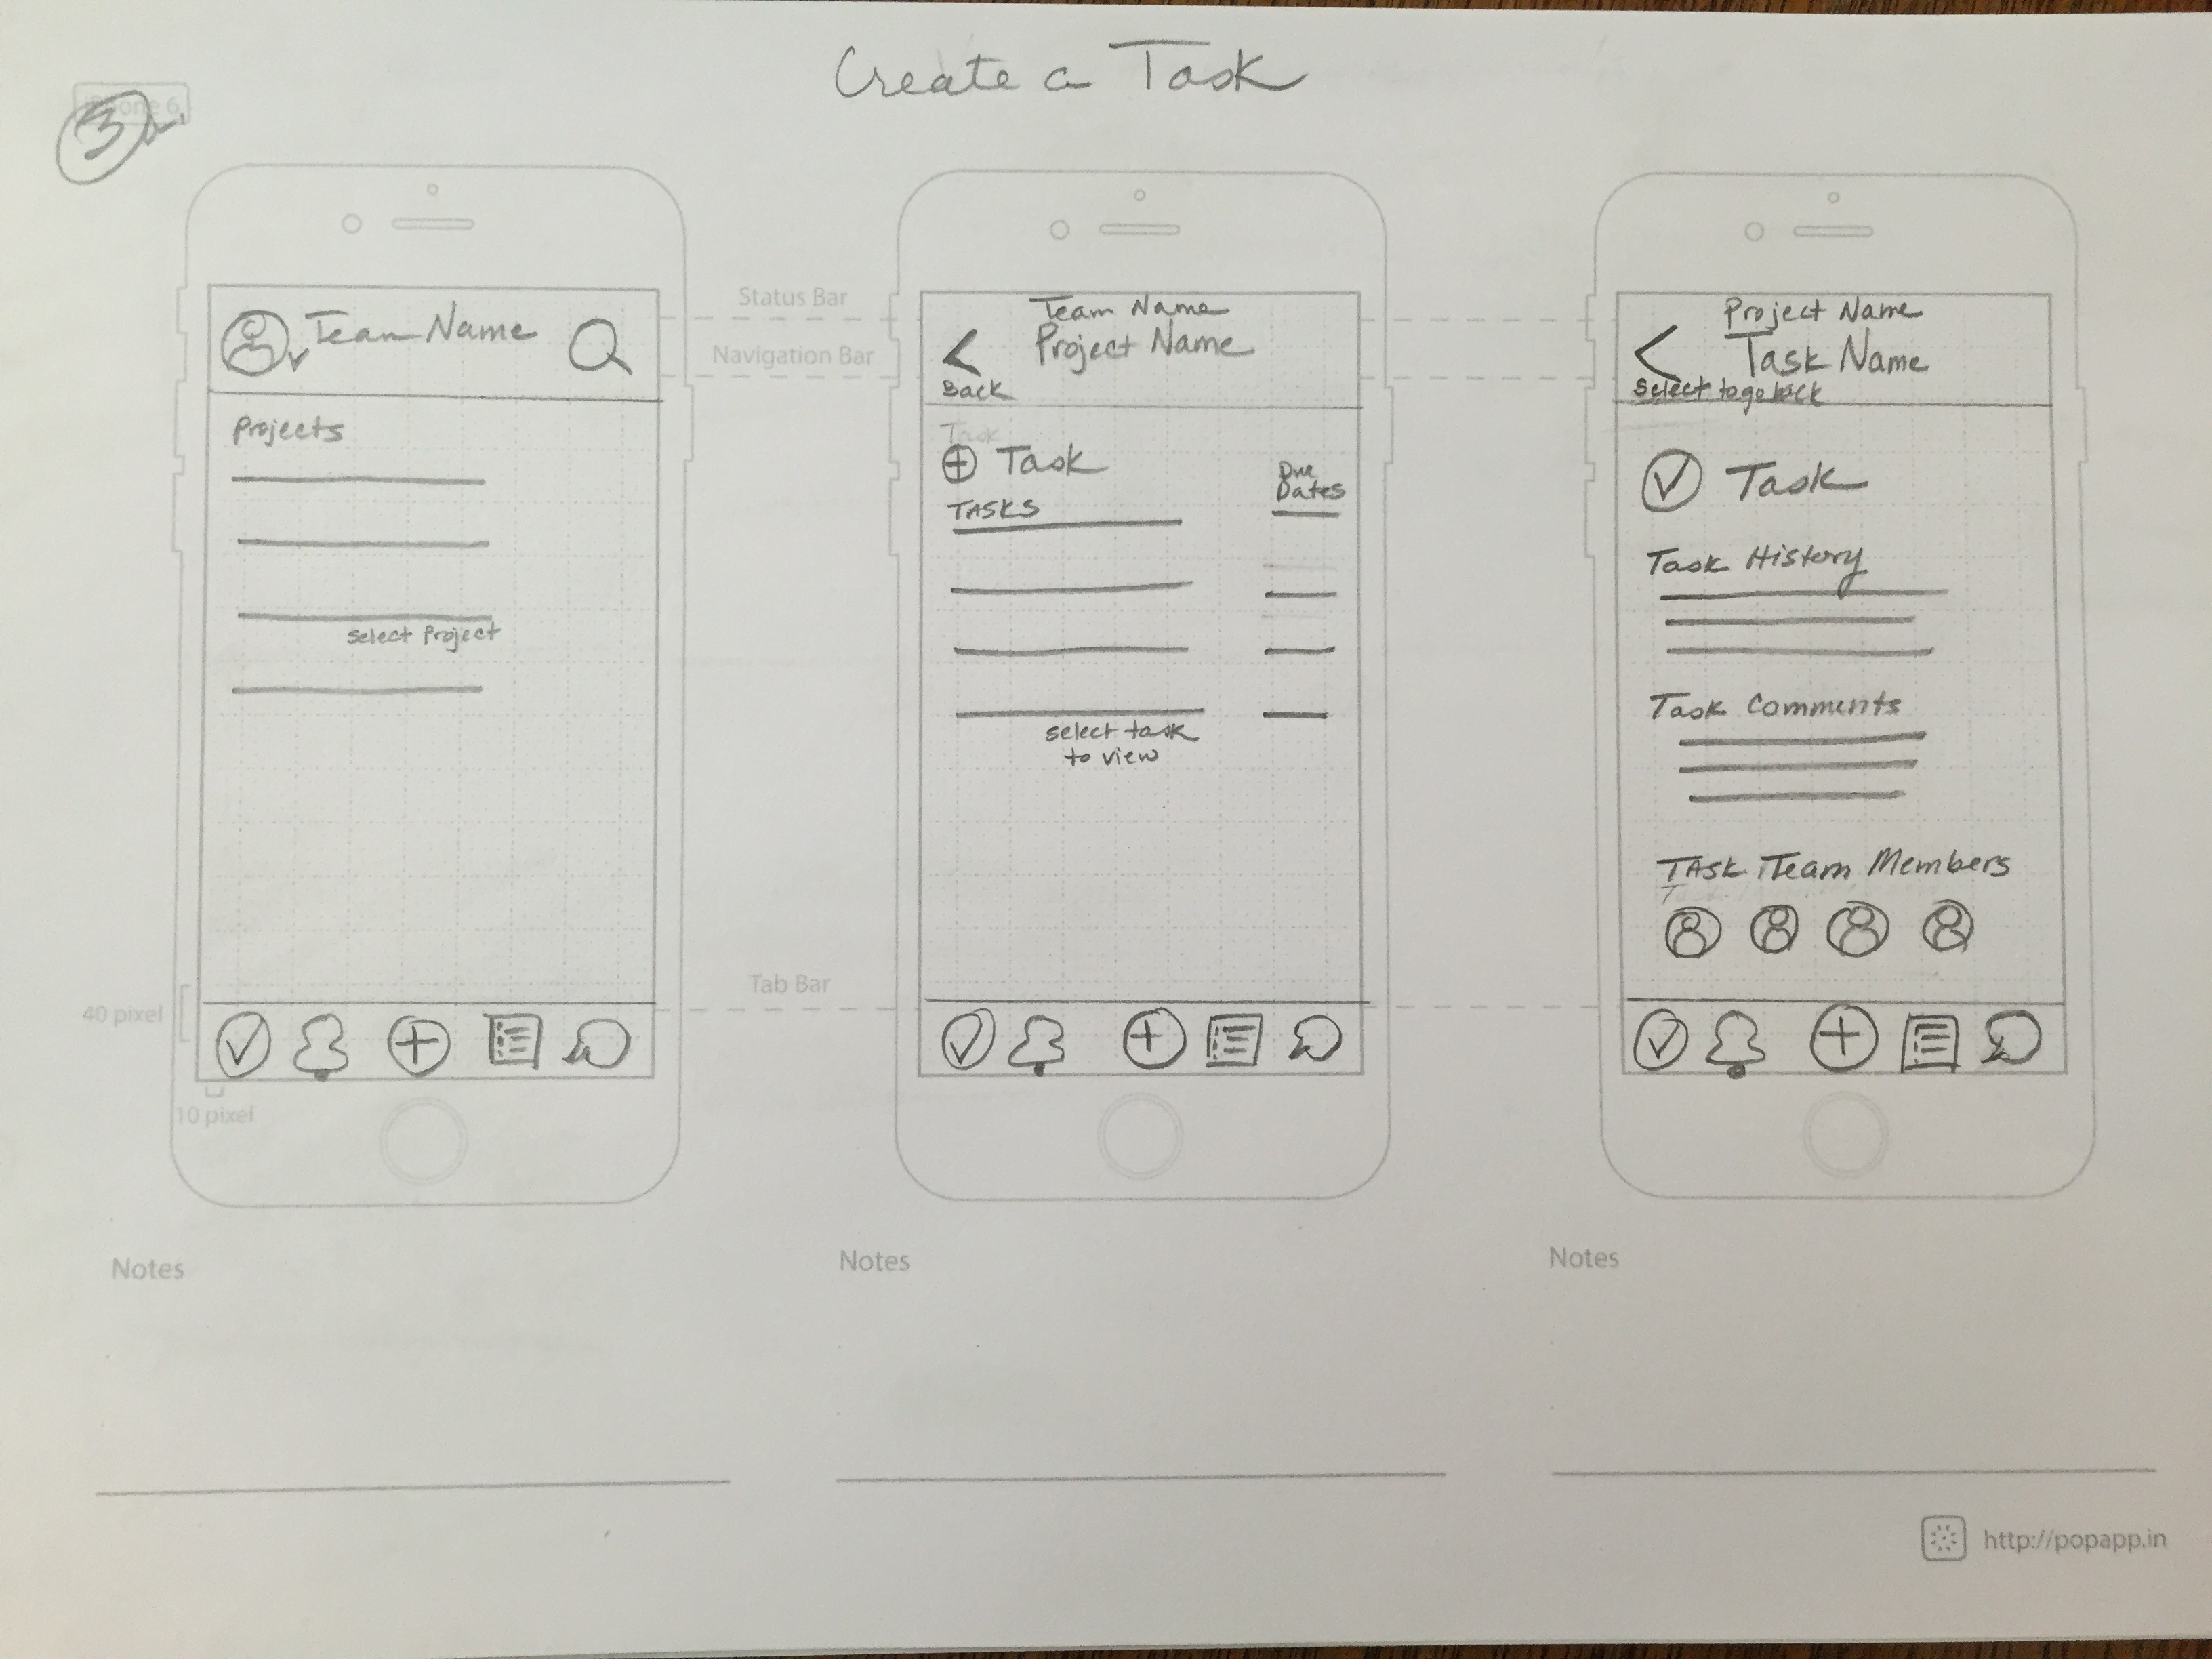 Create a Task
iPhone 6
3a.
Team Name
Projects
select Project
Status Bar
Navigation Bar
Tab Bar
40 pixel
10 pixel
Notes
Team Name
Project Name
Back
Task
Task
Due
Dates
TASKS
select task
to view
Notes
Project Name
Task Name
Select to go back
Task
Task History
Task Comments
TASK Team Members
Notes
http://popapp.in